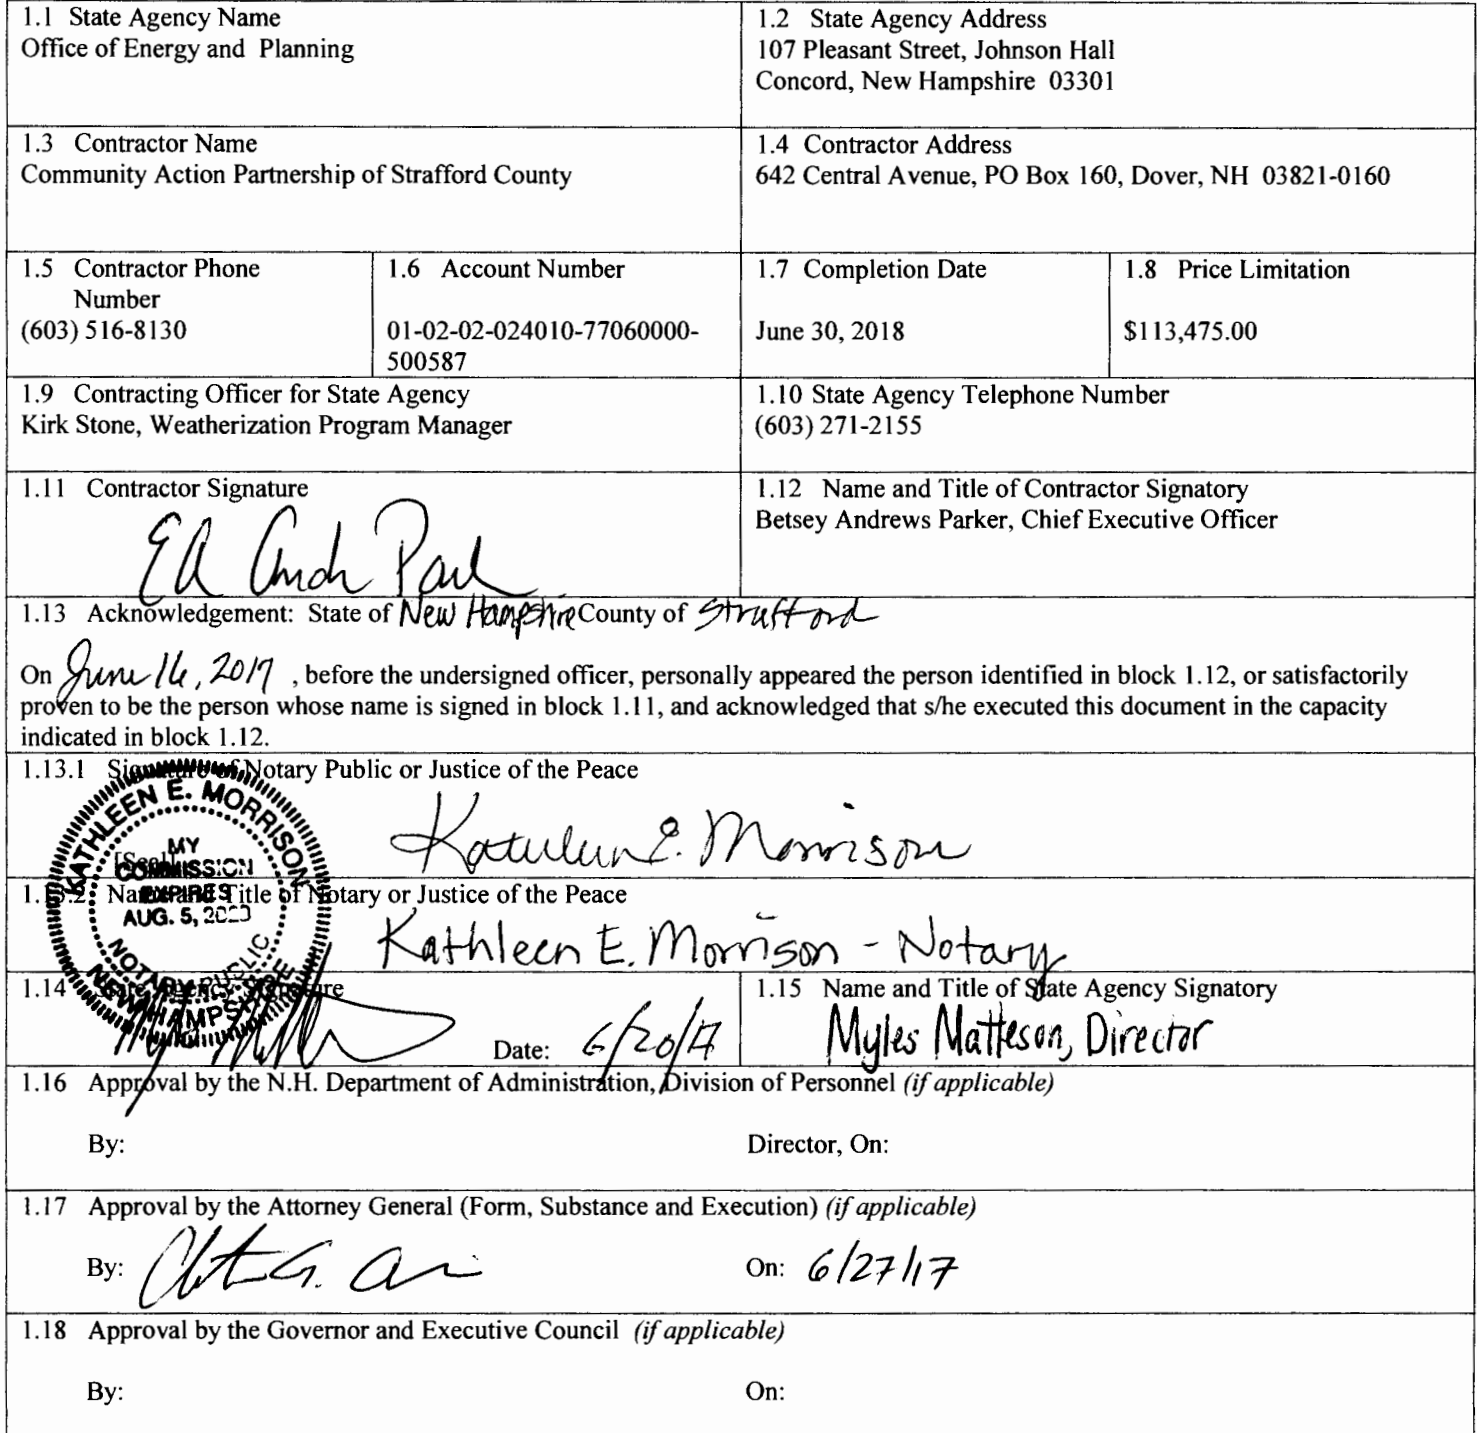 1.1 State Agency Name
Office of Energy and Planning
1.2 State Agency Address
107 Pleasant Street, Johnson Hall
Concord, New Hampshire 03301
1.3 Contractor Name
Community Action Partnership of Strafford County
1.4 Contractor Address
642 Central Avenue, PO Box 160, Dover, NH 03821-0160
1.5 Contractor Phone
Number
(603) 516-8130
1.6 Account Number
01-02-02-024010-77060000-
500587
1.7 Completion Date
June 30, 2018
1.8 Price Limitation
$113,475.00
1.9 Contracting Officer for State Agency
Kirk Stone, Weatherization Program Manager
1.10 State Agency Telephone Number
(603) 271-2155
1.11 Contractor Signature
1.12 Name and Title of Contractor Signatory
Betsey Andrews Parker, Chief Executive Officer
1.13 Acknowledgement: State of New Hampshire County of Strafford
On June 16, 2017 , before the undersigned officer, personally appeared the person identified in block 1.12, or satisfactorily
proven to be the person whose name is signed in block 1.11, and acknowledged that s/he executed this document in the capacity
indicated in block 1.12.
1.13.1 Signature of Notary Public or Justice of the Peace
Kathleen E. Morrison
[Seal]
KATHLEEN E. MORRISON
MY
COMMISSION
EXPIRES
AUG. 5, 2020
NOTARY PUBLIC
NEW HAMPSHIRE
1.13.2 Name and Title of Notary or Justice of the Peace
Kathleen E. Morrison - Notary
1.14 State Agency Signature
Date: 6/20/17
1.15 Name and Title of State Agency Signatory
Myles Matteson, Director
1.16 Approval by the N.H. Department of Administration, Division of Personnel (if applicable)
By: Director, On:
1.17 Approval by the Attorney General (Form, Substance and Execution) (if applicable)
By: On: 6/27/17
1.18 Approval by the Governor and Executive Council (if applicable)
By: On: